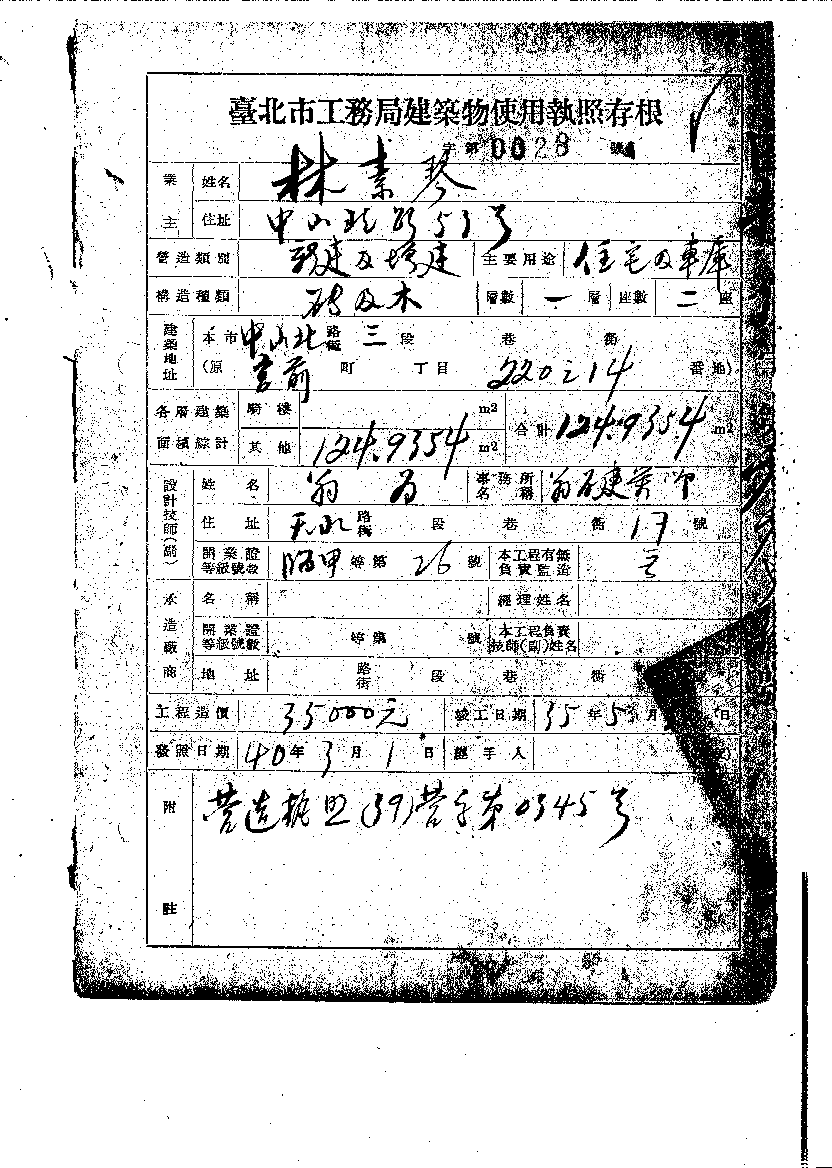 臺北市工務局建築物使用執照存根
字第 0028 號
業主 姓名 林素琴
住址 中山北路53號
營造類別 建及增建 主要用途 住宅及車庫
構造種類 磚及木 層數 一層 座數 二座
建築地址 本市中山北路街 三段 巷 衖
(原 宮前 町 丁目 220之14 番地)
各層建築面積綜計 騎樓 m2 合計 124.9354 m2
其他 124.9354 m2
設計技師(副) 姓名 翁 事務所名稱 翁 建築
住址 天水路街 段 巷 衖 17 號
開業證等級號數 甲等第 26 號 本工程有無負責監造
承造廠商 名稱 經理姓名
開業證等級號數 等第 號 本工程負責技師(副)姓名
地址 路街 段 巷 衖
工程造價 35000元 竣工日期 35年5月 日
發照日期 40年3月1日 經手人
附註 營造執照(39)營字第0345号